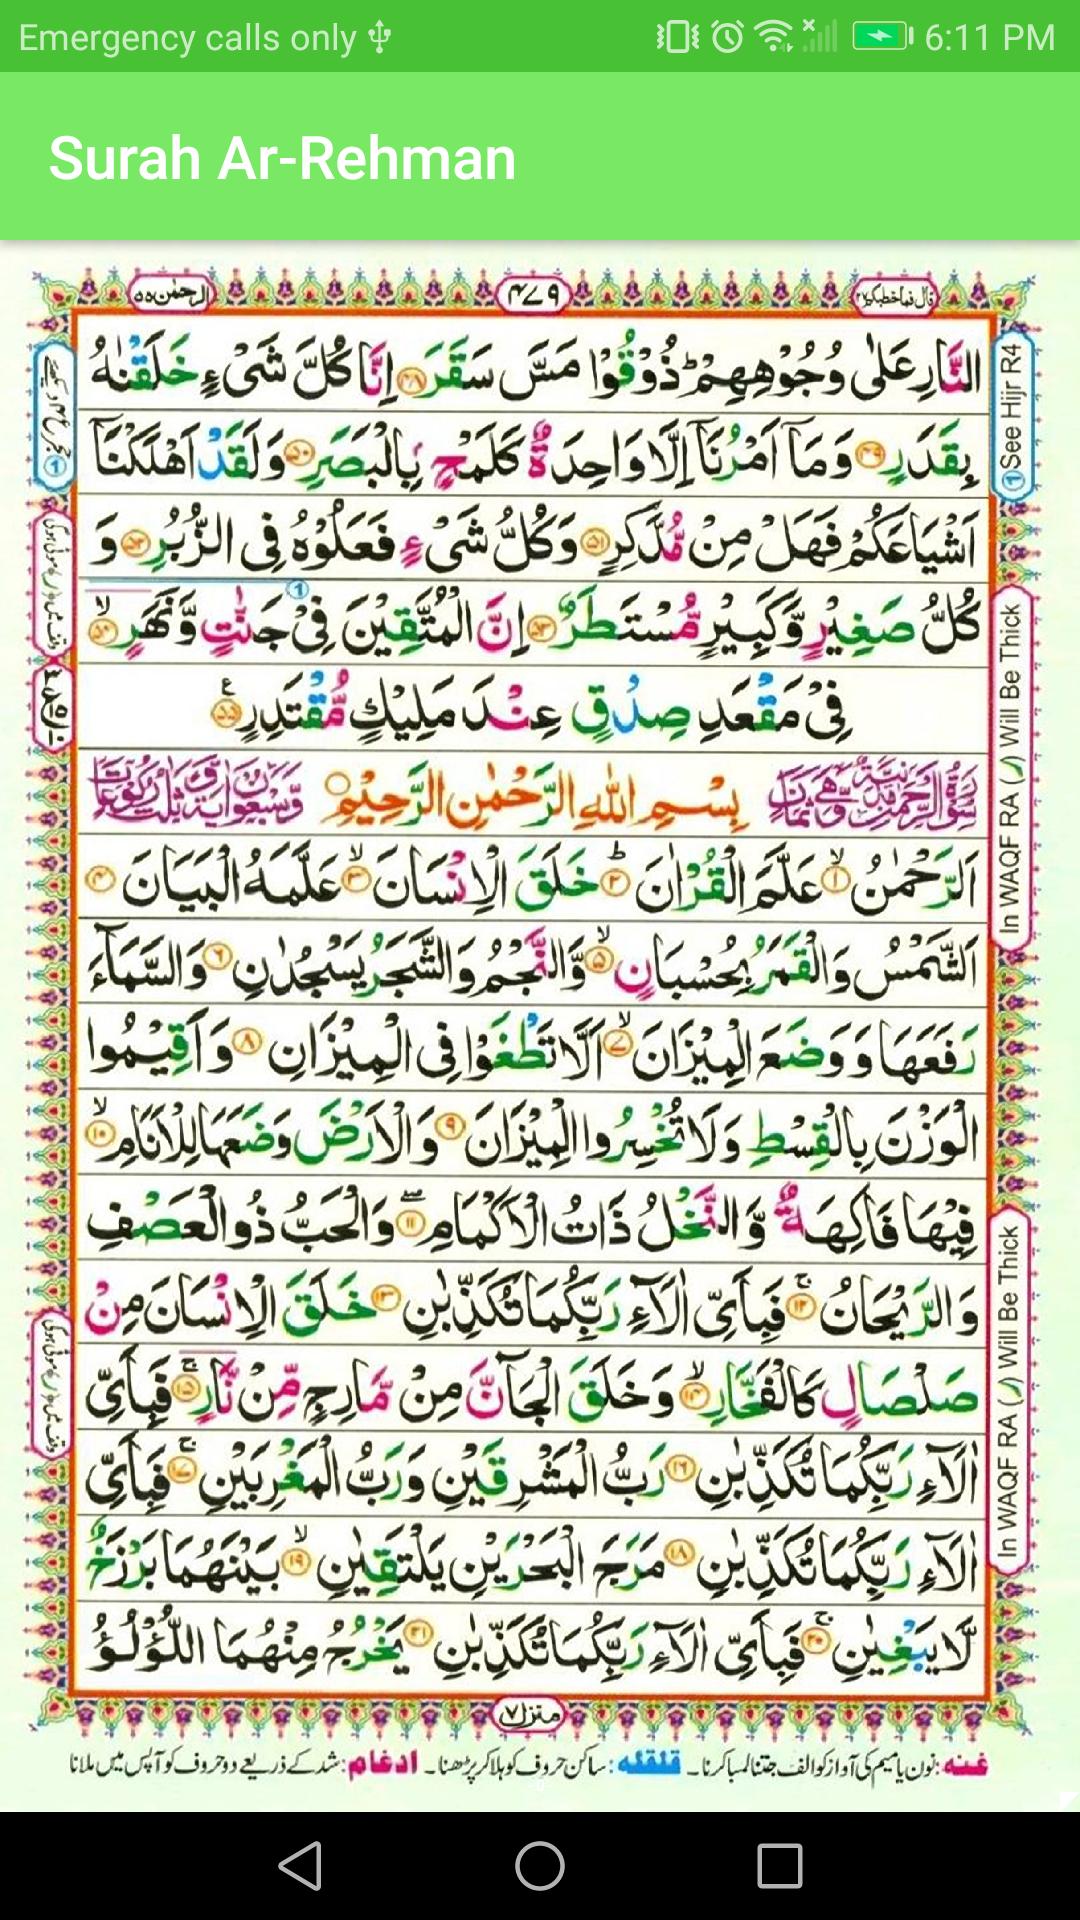 Emergency calls only 6:11 PM
Surah Ar-Rehman
الرحمٰن ٥٥ ٤٧٩ قال فما خطبكم ٢٧
النَّارِ عَلٰى وُجُوْهِهِمْ ؕ ذُوْقُوْا مَسَّ سَقَرَ ﴿۴۸﴾ اِنَّا كُلَّ شَیْءٍ خَلَقْنٰهُ
بِقَدَرٍ ﴿۴۹﴾ وَمَاۤ اَمْرُنَاۤ اِلَّا وَاحِدَةٌ كَلَمْحٍۭ بِالْبَصَرِ ﴿۵۰﴾ وَلَقَدْ اَهْلَكْنَاۤ
اَشْيَاعَكُمْ فَهَلْ مِنْ مُّدَّكِرٍ ﴿۵۱﴾ وَكُلُّ شَیْءٍ فَعَلُوْهُ فِى الزُّبُرِ ﴿۵۲﴾ وَ
كُلُّ صَغِيْرٍ وَّكَبِيْرٍ مُّسْتَطَرٌ ﴿۵۳﴾ اِنَّ الْمُتَّقِيْنَ فِىْ جَنّٰتٍ وَّنَهَرٍ ۙ ﴿۵۴﴾
فِىْ مَقْعَدِ صِدْقٍ عِنْدَ مَلِيْكٍ مُّقْتَدِرٍ ﴿۵۵﴾ ع
بِسْمِ اللهِ الرَّحْمٰنِ الرَّحِيْمِ
اَلرَّحْمٰنُ ۙ ﴿۱﴾ عَلَّمَ الْقُرْاٰنَ ؕ ﴿۲﴾ خَلَقَ الْاِنْسَانَ ۙ ﴿۳﴾ عَلَّمَهُ الْبَيَانَ ﴿۴﴾
اَلشَّمْسُ وَالْقَمَرُ بِحُسْبَانٍ ۙ ﴿۵﴾ وَّالنَّجْمُ وَالشَّجَرُ يَسْجُدٰنِ ﴿۶﴾ وَالسَّمَآءَ
رَفَعَهَا وَوَضَعَ الْمِيْزَانَ ۙ ﴿۷﴾ اَلَّا تَطْغَوْا فِى الْمِيْزَانِ ﴿۸﴾ وَاَقِيْمُوا
الْوَزْنَ بِالْقِسْطِ وَلَا تُخْسِرُوا الْمِيْزَانَ ﴿۹﴾ وَالْاَرْضَ وَضَعَهَا لِلْاَنَامِ ۙ ﴿۱۰﴾
فِيْهَا فَاكِهَةٌ وَّالنَّخْلُ ذَاتُ الْاَكْمَامِ ۖ ﴿۱۱﴾ وَالْحَبُّ ذُو الْعَصْفِ
وَالرَّيْحَانُ ۚ ﴿۱۲﴾ فَبِاَىِّ اٰلَآءِ رَبِّكُمَا تُكَذِّبٰنِ ﴿۱۳﴾ خَلَقَ الْاِنْسَانَ مِنْ
صَلْصَالٍ كَالْفَخَّارِ ۙ ﴿۱۴﴾ وَخَلَقَ الْجَآنَّ مِنْ مَّارِجٍ مِّنْ نَّارٍ ۚ ﴿۱۵﴾ فَبِاَىِّ
اٰلَآءِ رَبِّكُمَا تُكَذِّبٰنِ ﴿۱۶﴾ رَبُّ الْمَشْرِقَيْنِ وَرَبُّ الْمَغْرِبَيْنِ ۚ ﴿۱۷﴾ فَبِاَىِّ
اٰلَآءِ رَبِّكُمَا تُكَذِّبٰنِ ﴿۱۸﴾ مَرَجَ الْبَحْرَيْنِ يَلْتَقِيٰنِ ۙ ﴿۱۹﴾ بَيْنَهُمَا بَرْزَخٌ
لَّا يَبْغِيٰنِ ۚ ﴿۲۰﴾ فَبِاَىِّ اٰلَآءِ رَبِّكُمَا تُكَذِّبٰنِ ﴿۲۱﴾ يَخْرُجُ مِنْهُمَا اللُّؤْلُؤُ
① See Hijr R4
In WAQF RA (ر) Will Be Thick
In WAQF RA (ر) Will Be Thick
منزل ٧
غنه: نون یا میم کی آواز کو الف جتنا لمبا کرنا۔ قلقله: ساکن حروف کو ہلا کر پڑھنا۔ ادغام: شد کے ذریعے دو حروف کو آپس میں ملانا